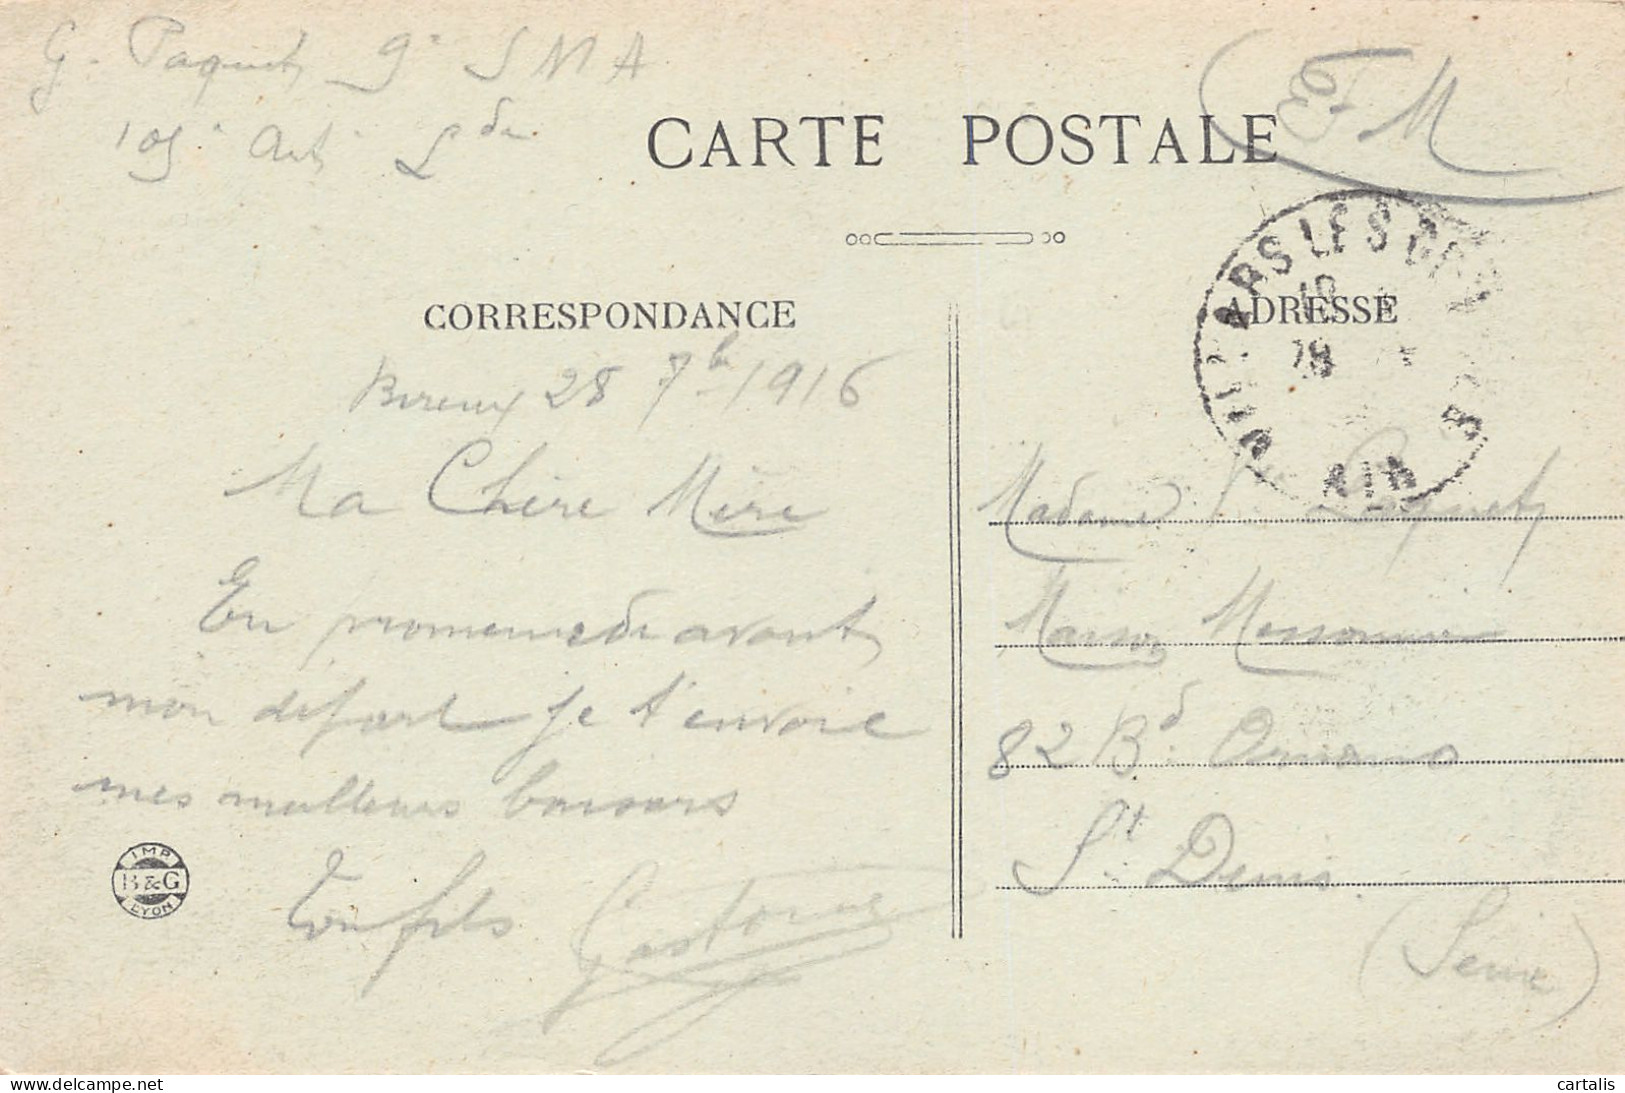 G. Paquet 9e SMA
105e Art. Lde
CARTE POSTALE
F M
VILLARS LES
AIN
CORRESPONDANCE
ADRESSE
28 7b 1916
Ma Chère Mère
En promenade avant
mon départ je t'envoie
mes meilleurs baisers
Ton fils Gaston
Madame Vve Paquet
Maison
82 Bd Ornano
St Denis
(Seine)
IMP
B & G
LYON
delcampe.net
cartalis